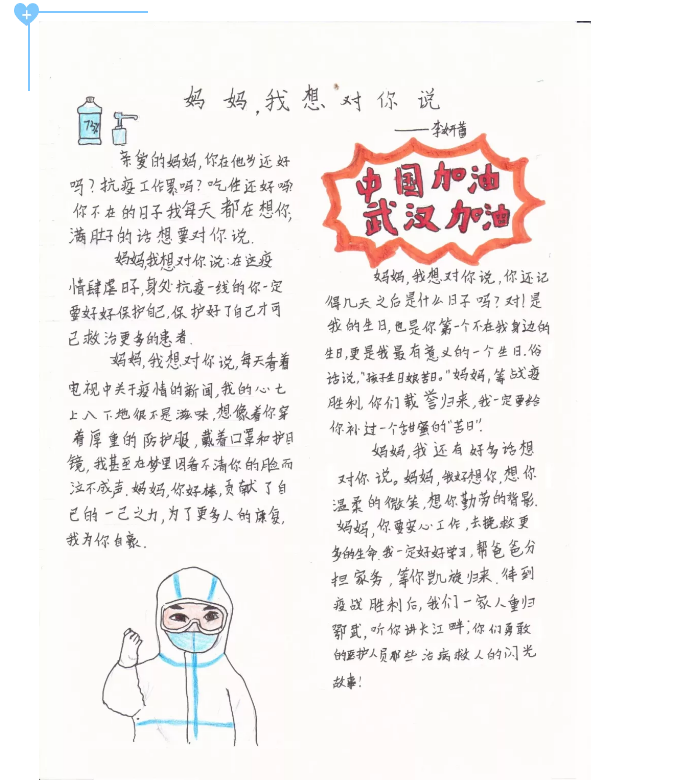 妈妈,我想对你说
——李妍萱
75%
亲爱的妈妈,你在他乡还好
吗?抗疫工作累吗?吃住还好吗?
你不在的日子我每天都在想你,
满肚子的话想要对你说.
妈妈,我想对你说:在这疫
情肆虐日子,身处抗疫一线的你一定
要好好保护自己,保护好了自己才可
已救治更多的患者.
妈妈,我想对你说,每天看着
电视中关于疫情的新闻,我的心七
上八下地很不是滋味,想像着你穿
着厚重的防护服,戴着口罩和护目
镜,我甚至在梦里因看不清你的脸而
泣不成声.妈妈,你好棒,贡献了自
己的一己之力,为了更多人的康复,
我为你自豪.
中国加油
武汉加油
妈妈,我想对你说,你还记
得几天之后是什么日子吗?对!是
我的生日,也是你第一个不在我身边的
生日,更是我最有意义的一个生日.俗
话说,"孩子生日娘苦日."妈妈,等战疫
胜利,你们载誉归来,我一定要给
你补过一个甜蜜的"苦日".
妈妈,我还有好多话想
对你说。妈妈,我好想你,想你
温柔的微笑,想你勤劳的背影.
妈妈,你要安心工作,去挽救更
多的生命.我一定好好学习,帮爸爸分
担家务,等你凯旋归来.待到
疫战胜利后,我们一家人重归
鄂武,听你讲长江畔,你们勇敢
的医护人员那些治病救人的闪光
故事!